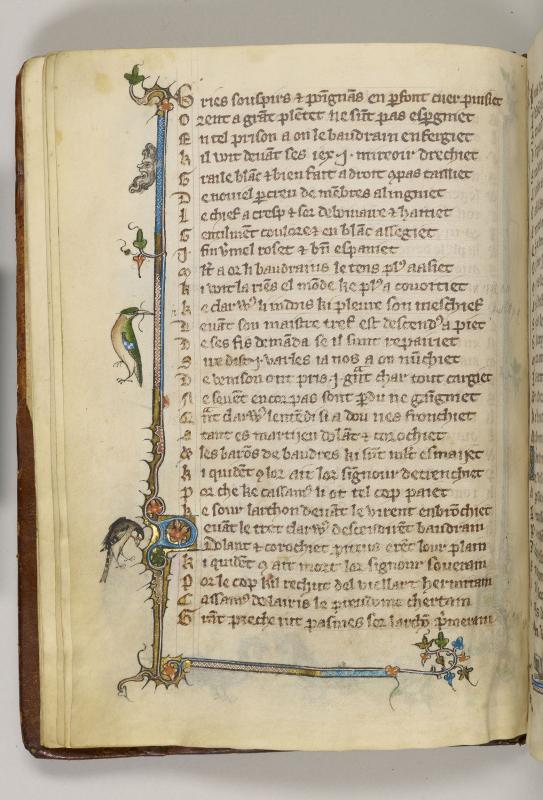 G ries souspirs & poignās en pfont cuer puisiet
O rent a grāt plētet ne sūt pas espgniet
E n tel prison a on le baudrain enfergiet
K il voit deuāt ses iex .j. mireoir drechiet
G raile blāc & bien fait a droit 9pas tailliet
D e nouuel pcreu de mēbres alingniet
L e chief a cresp & sor
G entilmēt couloret en blāc assegiet
J. fin v'mel roset & bn̄ espaniet
M lt a or li baudrains le tens pl9 aasiet
K i voit la riēs el mōde ke pl9 a couoitiet
K e clarw9 li indois ki pleure son meschief
D euāt son maistre tref est descendu a piet
D e ses fis demāda se il sunt repairiet
S ire dist .j. varles ia nos a on nūchiet
D e venison ont pris .j. grāt char tout cargiet
N e seuēt encor pas sont pdu ne gaigniet
Q nt clarw9 lentēdi si a dou nes fronchiet
A tant es marchien dolāt & corochiet
& les barōs de baudres ki sūt mlt esmaiet
K i quidēt 9 lor ait lor signour detrenchiet
P or che ke cassam9 li ot tel cop paiet
K e sour larchon deuāt le virent enbrōchiet
D euāt le tref clarw9 descendirēt baudrain
Dolant & corochiet piteus erēt lour plain
K i quidēt 9 ait mort lor signour souerain
P or le cop kil rechut del viellart
C assam9 de lairis le
G rāt pieche iut pasmes sor larchō pmerain